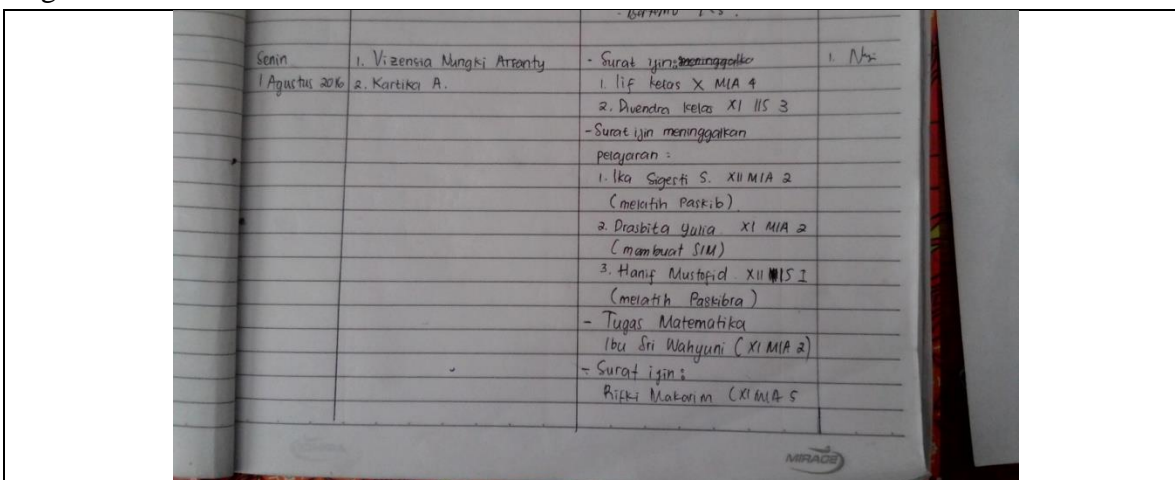 Senin
1 Agustus 2016
1. Vizensia Nungki Arranty
2. Kartika A.
- Surat ijin:
1. Iif kelas X MIA 4
2. Divendra kelas XI IIS 3
- Surat ijin meninggalkan
pelajaran :
1. Ika Sigesti S. XII MIA 2
(melatih Paskib)
2. Drasbita Yulia XI MIA 2
(mambuat SIM)
3. Hanif Mustofid XII IIS I
(melatih Paskibra)
- Tugas Matematika
Ibu Sri Wahyuni (XI MIA 2)
- Surat ijin :
Rifki Makarim (XI MIA 5
1.
MIRAGE